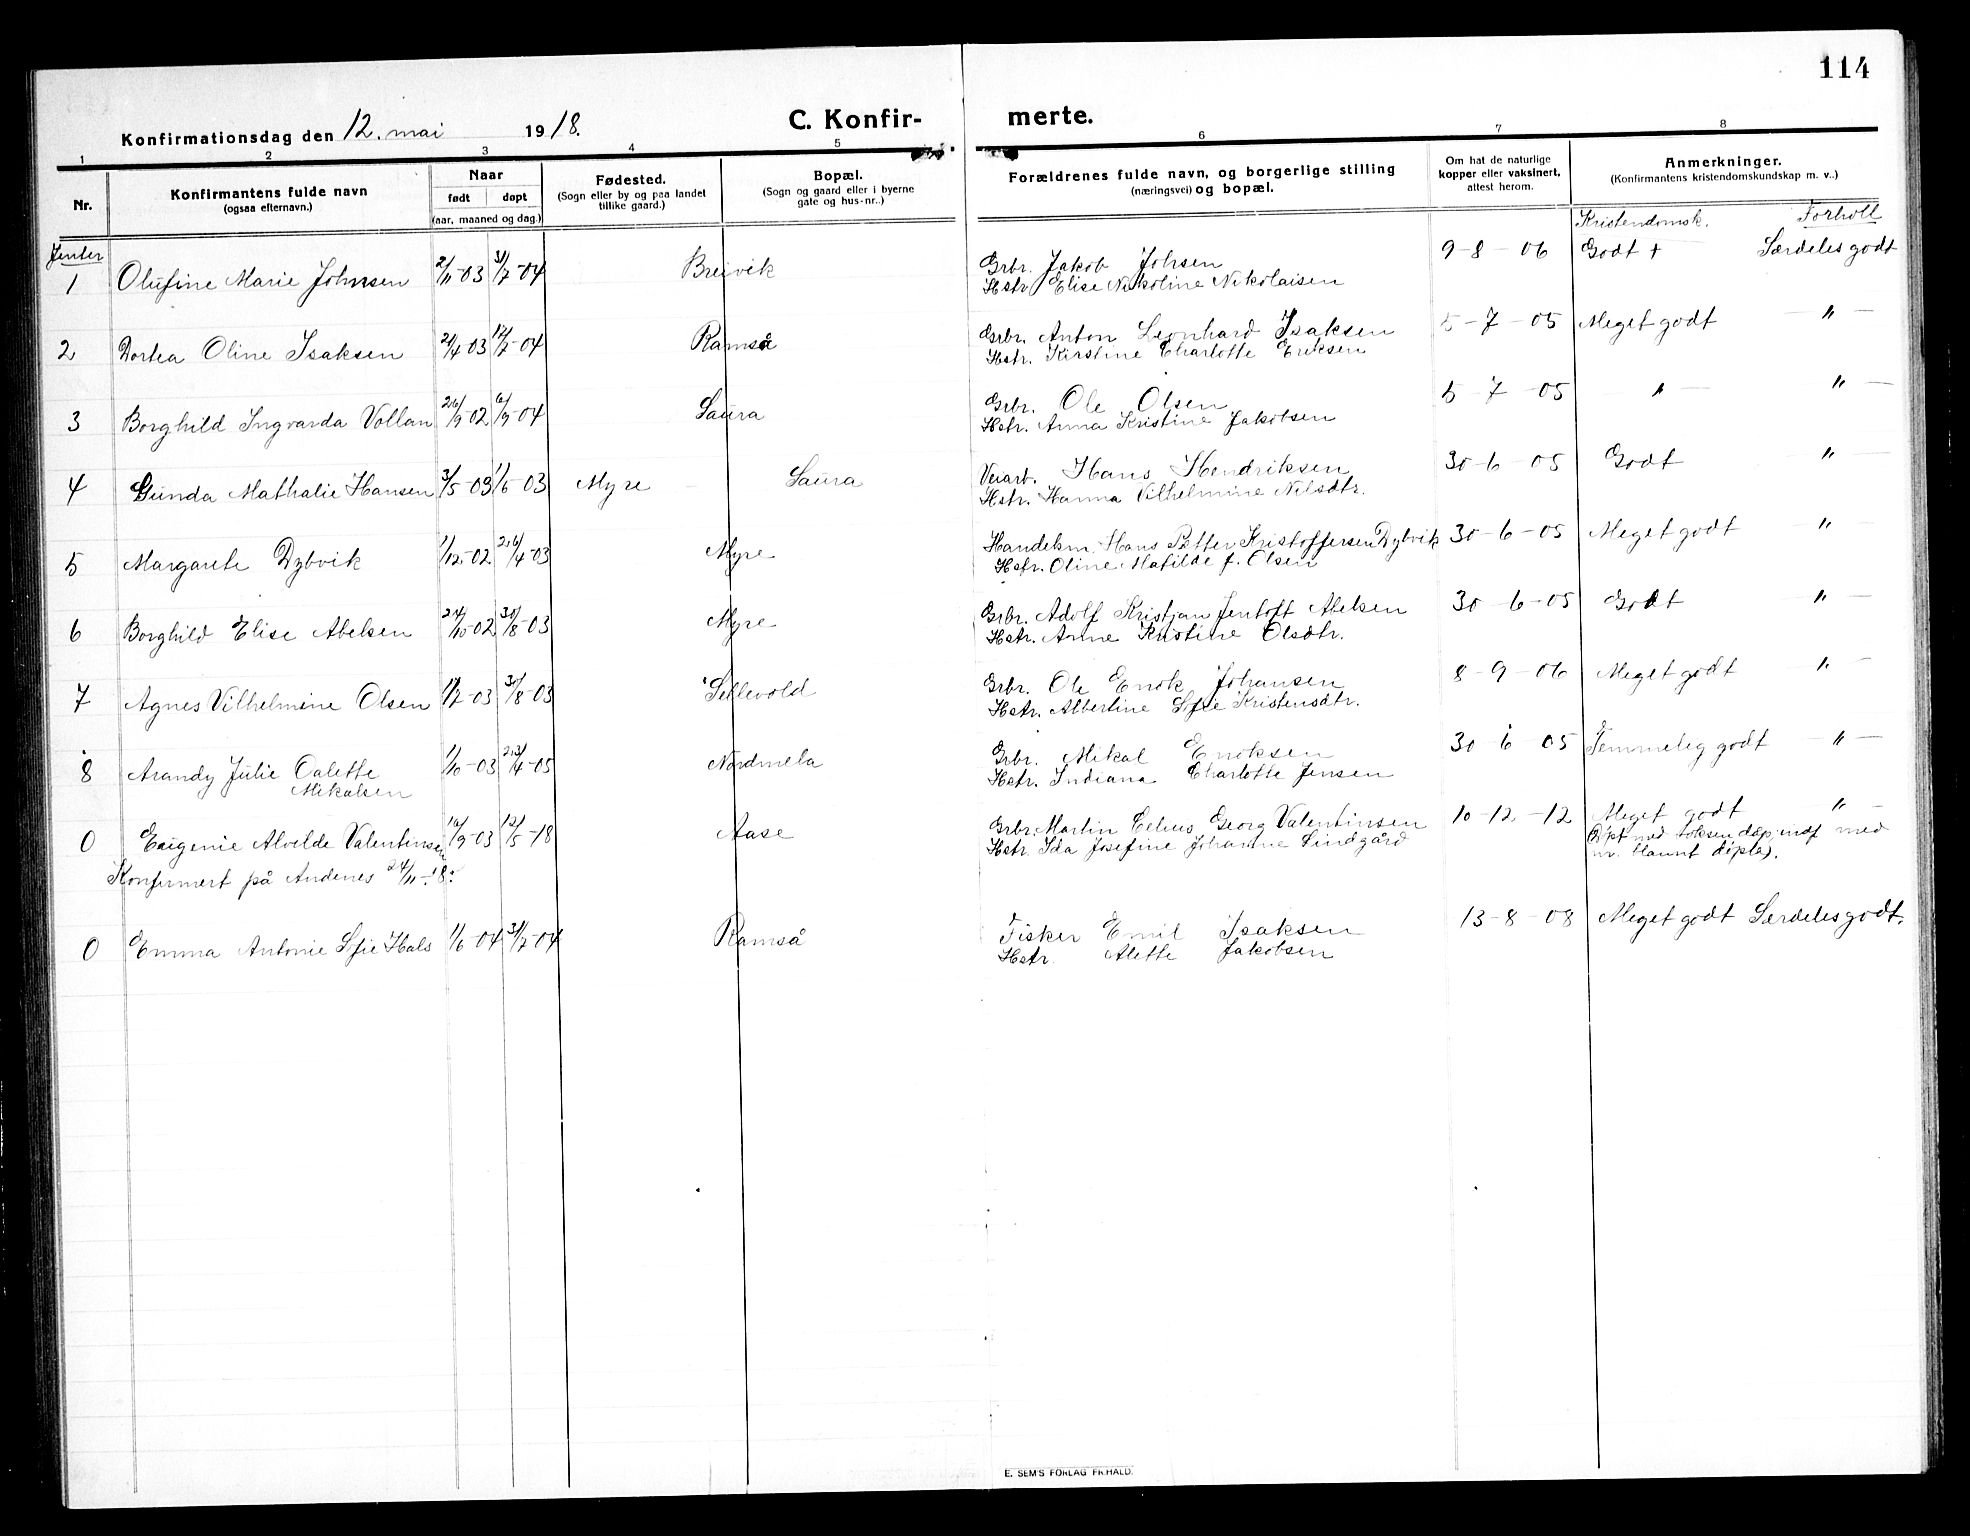 114
Konfirmationsdag den 12. mai 1918. C. Konfirmerte.
1 2 3 4 5 6 7 8
Nr. Konfirmantens fulde navn (ogsaa efternavn.) Naar født døpt (aar, maaned og dag.)
Fødested. (Sogn eller by og paa landet tillike gaard.)
Bopæl. (Sogn og gaard eller i byerne gate og hus-nr..)
Forældrenes fulde navn, og borgerlige stilling (næringsvei) og bopæl.
Om hat de naturlige kopper eller vaksinert, attest herom.
Anmerkninger. (Konfirmantens kristendomskundskap m. v..)
Jenter Kristendomsk. Forholl
1 Olufine Marie Johnsen 2/11-03 31/7-04 Breivik Grbr. Jakob Johsen 9-8-06 Godt + Særdeles godt
Hstr. Elise Nikoline Nikolaisen
2 Dortea Oline Isaksen 24/4 03 17/7-04 Ramså Grbr. Anton Leonhard Isaksen 5-7-05 Meget godt — " —
Hstr. Kirstine Charlotte Eriksen
3 Borghild Ingvarda Vollan 26/9 02 6/9-04 Saura Grbr. Ole Olsen 5-7-05 " — " —
Hstr. Anna Kristine Jakobsen
4 Gunda Mathalie Hansen 3/5-03 1/6-03 Myre Saura Veiarb. Hans Hendriksen 30-6-05 Godt " —
Hstr. Hanna Vilhelmine Nilsdtr.
5 Margarete Dybvik 1/12-02 26/4-03 Myre Handelsm. Hans Petter Kristoffersen Dybvik 30-6-05 Meget godt " —
Hstr. Oline Matilde f. Olsen
6 Borghild Elise Abelsen 24/10-02 30/8-03 Myre Grbr. Adolf Kristjan Jentoft Abelsen 30-6-05 Godt " —
Hstr. Anne Kristine Olsdtr.
7 Agnes Vilhelmine Olsen 17/2-03 30/8-03 Sellevold Grbr. Ole Enok Johansen 8-9-06 Meget godt " —
Hstr. Albertine Sofie Kristensdtr.
8 Arandy Julie Oalette 1/10-03 23/4-05 Nordmela Grbr. Mikal Enoksen 30-6-05 Temmeleg godt — " —
Mikalsen Hstr. Indiana Charlotte Jensen
0 Eugenie Alvilde Valentinsen 16/9-03 12/5-18 Aase Grbr. Martin Georg Valentinsen 10-12-12 Meget godt " —
Hstr. Ida Josefine Johanne Lindgård (Døpt med voksen dåp, indf med
nr. blannt døpte).
Konfirmert på Andenes 24/11-'18.
0 Emma Antonie Sofie Hals 1/6-04 31/7-04 Ramså Fisker Emil Isaksen 13-8-08 Meget godt Særdeles godt.
Hstr. Alette Jakobsen
E. SEM'S FORLAG FR.HALD.